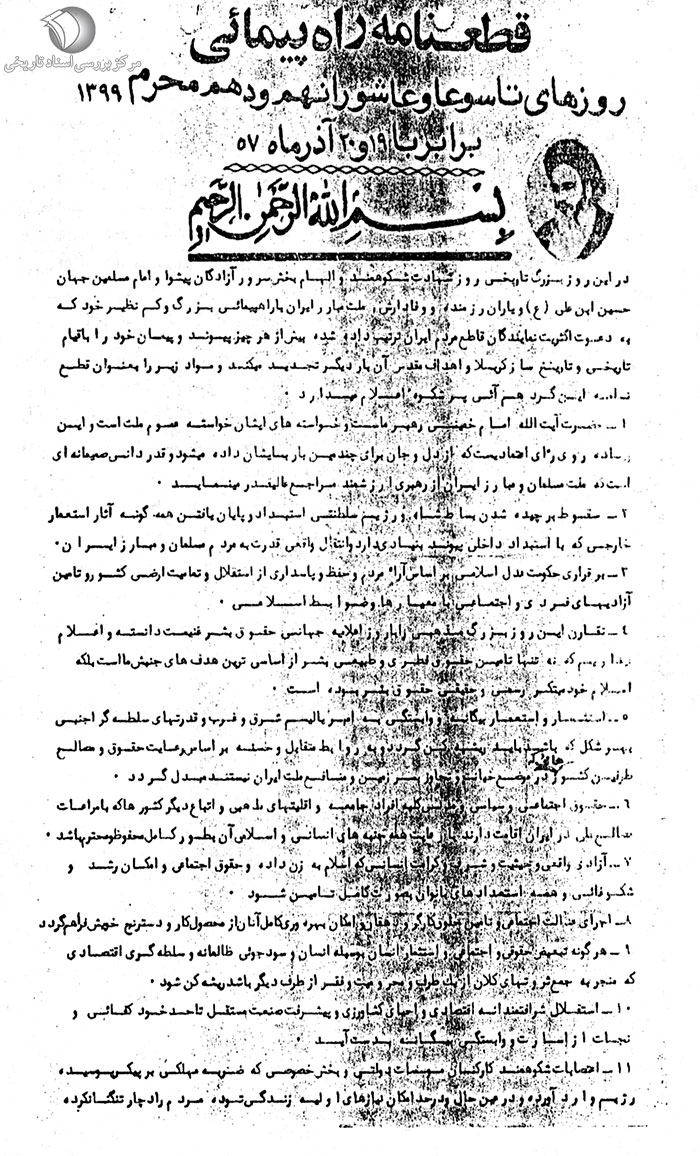 مرکز بررسی اسناد تاریخی
قطعنامه راه پیمائی
روزهای تاسوعا و عاشورا نهم و دهم محرم ۱۳۹۹
برابر با ۱۹ و ۲۰ آذرماه ۵۷
بسم الله الرحمن الرحیم
در این روز بزرگ تاریخی روز شهادت شکوهمند و الهام بخش سرور آزادگان پیشوا و امام مسلمین جهان
حسین ابن علی (ع) و یاران رزمنده و وفادارش ملت مبارز ایران با راهپیمائی بزرگ و کم نظیر خود که
به دعوت اکثریت نمایندگان قاطع مردم ایران ترتیب داده شده بیش از هر چیز پیوند و پیمان خود را با قیام
تاریخی و تاریخ ساز کربلا و اهداف مقدس آن بار دیگر تجدید میکند و مواد زیر را بعنوان قطع
نامه این گرد هم آئی پر شکوه اعلام میدارد ۰
۱ – حضرت آیت الله امام خمینی رهبر ماست و خواسته های ایشان خواسته عموم ملت است و این
رای اعتمادیست که از دل و جان برای چندمین بار بایشان داده میشود و قدردانی صمیمانه ای
است که ملت مسلمان و مبارز ایران از رهبری ارزشمند مراجع عالیقدر مینماید ۰
۲ – سقوط برچیده شدن بساط شاه و رژیم سلطنتی استبداد و پایان یافتن همه گونه آثار استعمار
خارجی که با استبداد داخلی پیوند بنیادی دارد و انتقال واقعی قدرت به مردم مسلمان و مبارز ایران ۰
۳ – برقراری حکومت عدل اسلامی بر اساس آراء مردم و حفظ و پاسداری از استقلال و تمامیت ارضی کشور و تامین
آزادیهای فردی و اجتماعی با معیارها و ضوابط اسلامی ۰
۴ – تقارن این روز بزرگ مذهبی را با روز اعلامیه جهانی حقوق بشر غنیمت دانسته و اعلام
میداریم که نه تنها تامین حقوق فطری و طبیعی بشر از اساسی ترین هدف های جنبش ما است بلکه
اسلام خود مبتکر رسمی و حقیقی حقوق بشر بوده است ۰
۵ – استثمار و استعمار بیگانه و وابستگی به امپریالیسم شرق و غرب و قدرتهای سلطه گر اجنبی
بهر شکل که باشد باید ریشه کن گردد و به روابط متقابل و حسنه بر اساس رعایت حقوق و مصالح
طرفین کشورهائیکه در موضع خیانت و تجاوز بر زمین و منافع ملت ایران نیستند مبدل گردد ۰
۶ – حقوق اجتماعی و سیاسی و مذهبی کلیه افراد جامعه و اقلیتهای مذهبی و اتباع دیگر کشورها که با مراعات
مصالح ملی در ایران اقامت دارند با رعایت همه جنبه های انسانی و اسلامی آن بطور کامل محفوظ و محترم باشد ۰
۷ – آزادی واقعی و حیثیت و شرف و کرامت انسانی که اسلام به زن داده و حقوق اجتماعی و امکان رشد و
شکوفائی و همه استعدادهای بانوان بصورت کامل تامین شود ۰
۸ – اجرای عدالت اجتماعی و تامین حقوق کارگر و دهقان و امکان بهره وری کامل آنان از محصول کار و دسترنج خویش فراهم گردد
۹ – هرگونه تبعیض حقوقی و اجتماعی و استثمار انسان بوسیله انسان و سودجوئی ظالمانه و سلطه گری اقتصادی
که منجر به جمع ثروتهای کلان از یک طرف و محرومیت و فقر از طرف دیگر باشد ریشه کن شود ۰
۱۰ – استقلال شرافتمندانه اقتصادی و احیای کشاورزی و پیشرفت صنعت مستقل تا حد خود کفائی و
نجات از اسارت و وابستگی بیگانه بدست آید ۰
۱۱ – اعتصابات شکوهمند کارکنان موسسات دولتی و بخش خصوصی که ضربه مهلکی بر پیکر پوسیده
رژیم وارد آورده و در عین حال و در حد امکان نیازهای اولیه زندگی توده مردم را دچار تنگنا نکرده